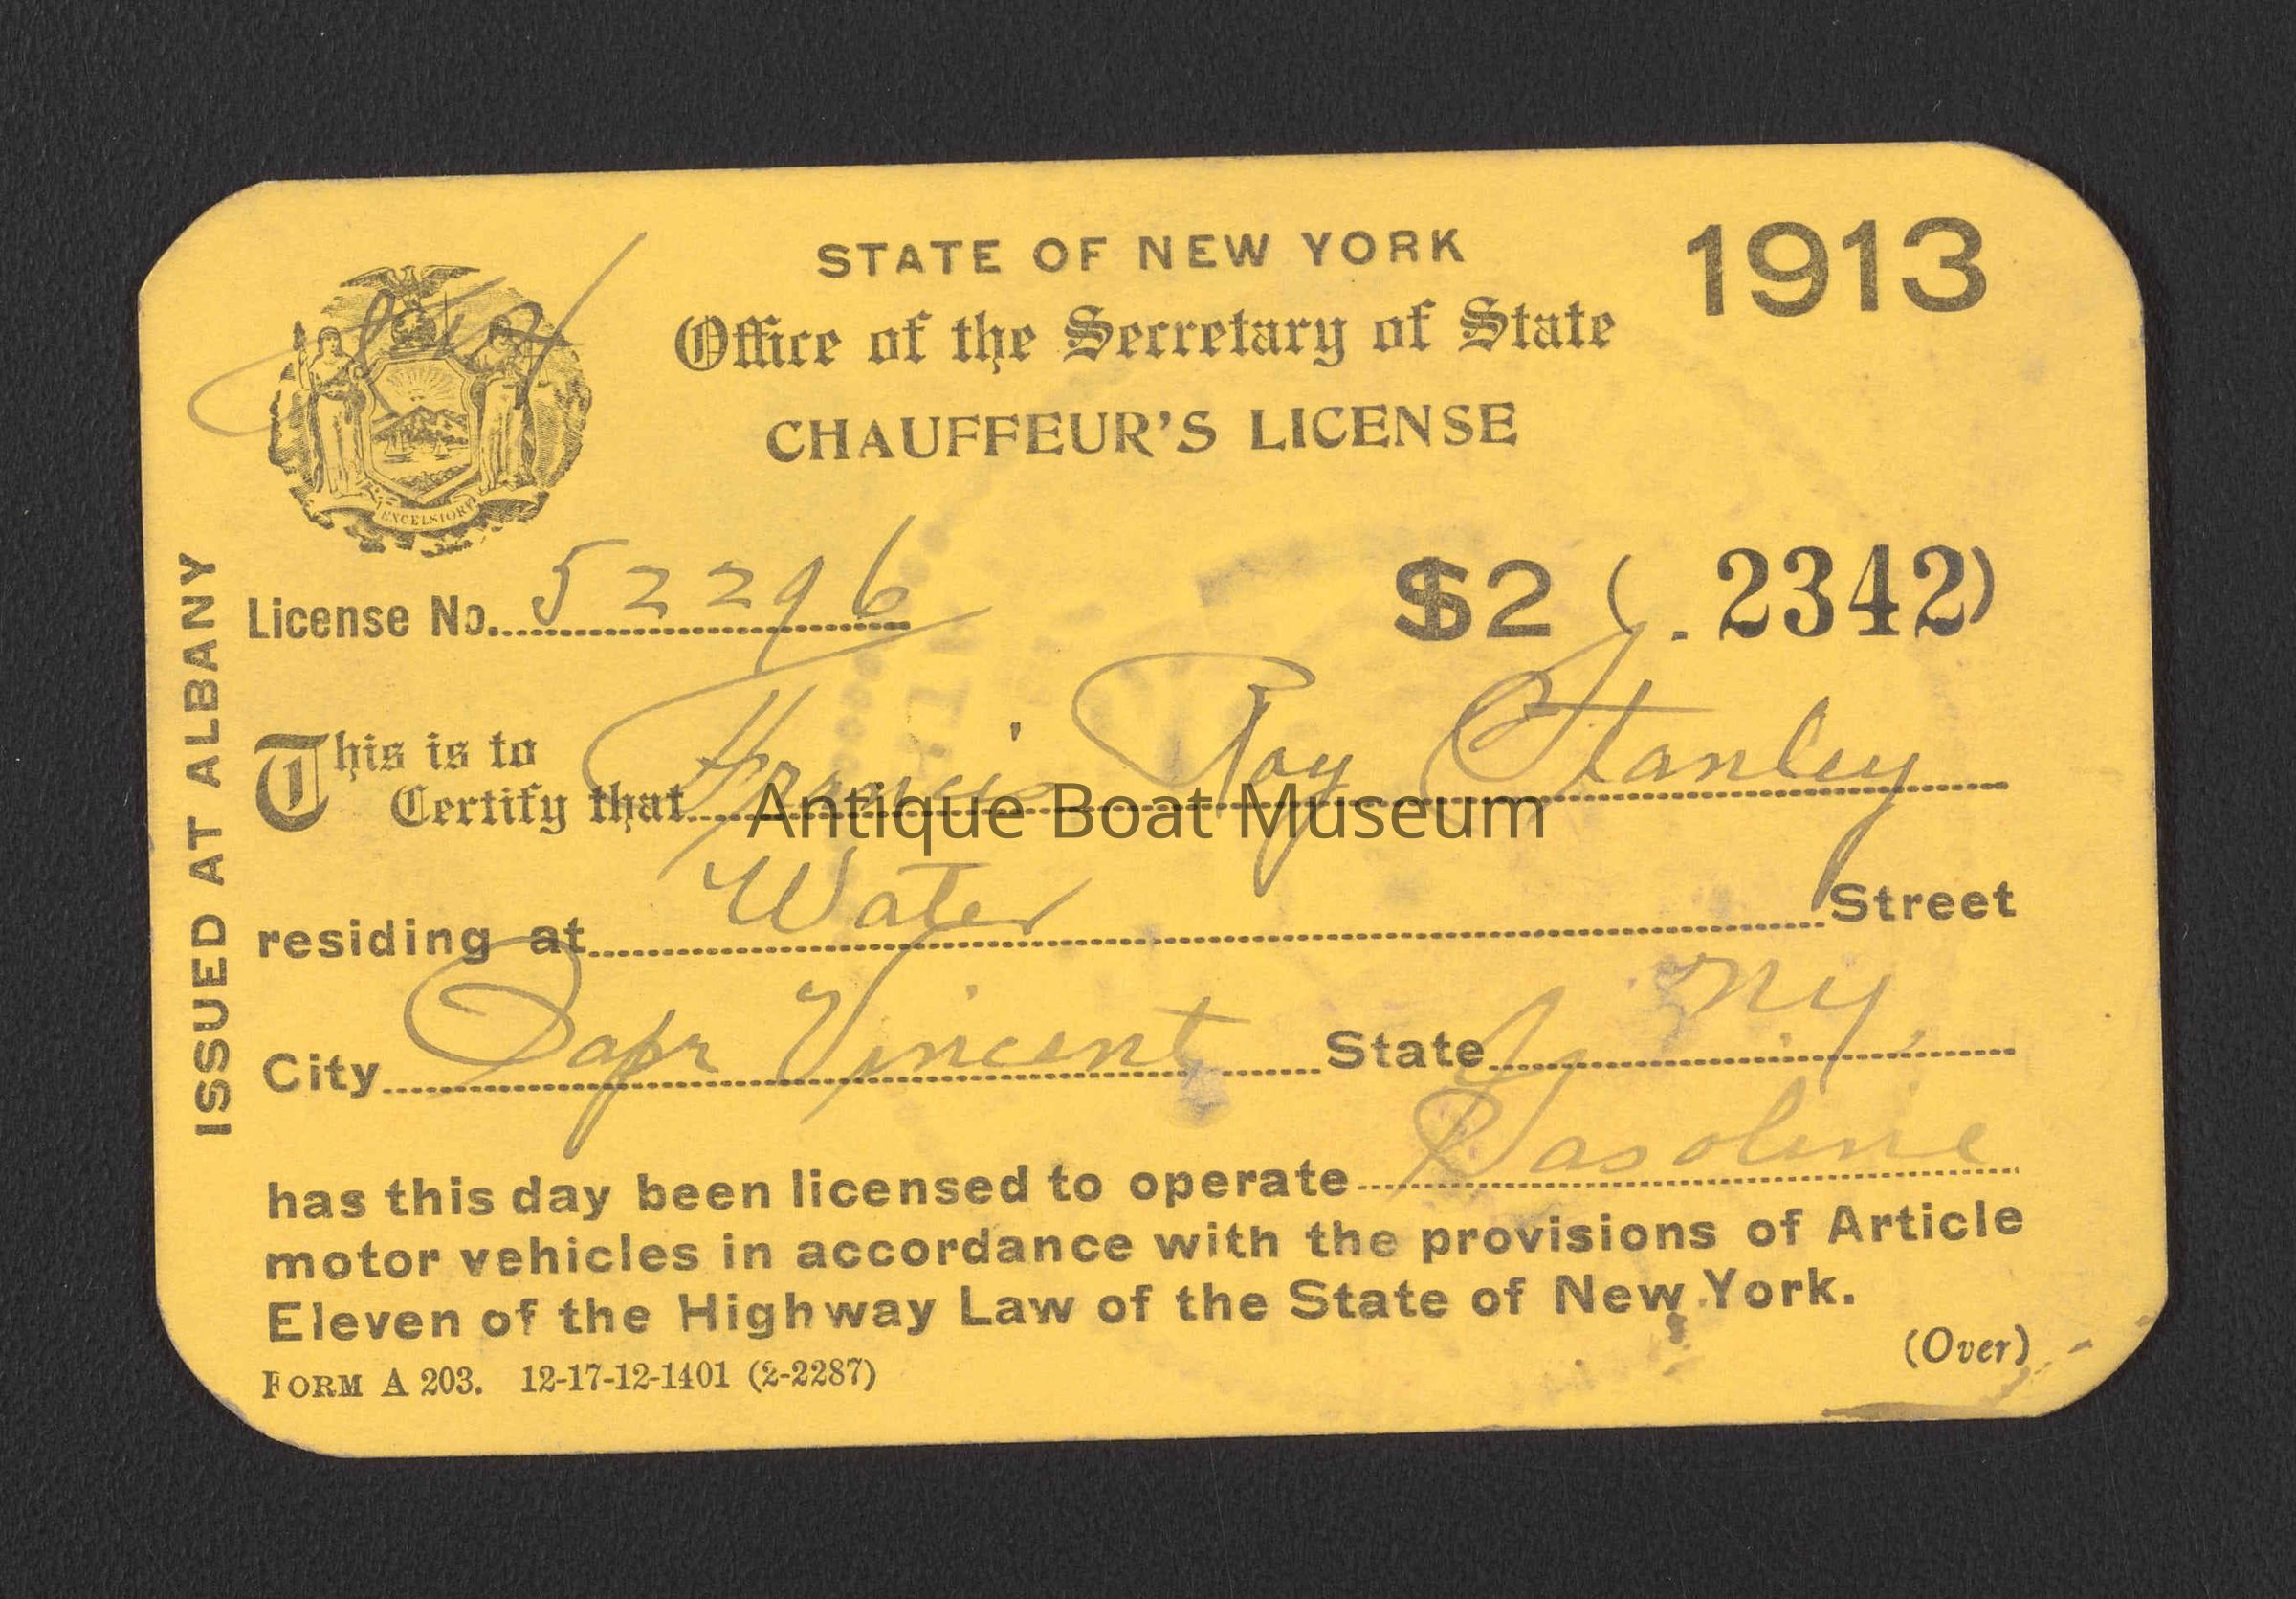 STATE OF NEW YORK
1913
Office of the Secretary of State
CHAUFFEUR'S LICENSE
EXCELSIOR
License No. 52296
$2 ( . 2342)
This is to
Certify that Francis Roy Stanley
Antique Boat Museum
residing at Water Street
City Cape Vincent State N.Y.
has this day been licensed to operate Gasoline
motor vehicles in accordance with the provisions of Article
Eleven of the Highway Law of the State of New York.
(Over)
FORM A 203. 12-17-12-1401 (2-2287)
ISSUED AT ALBANY